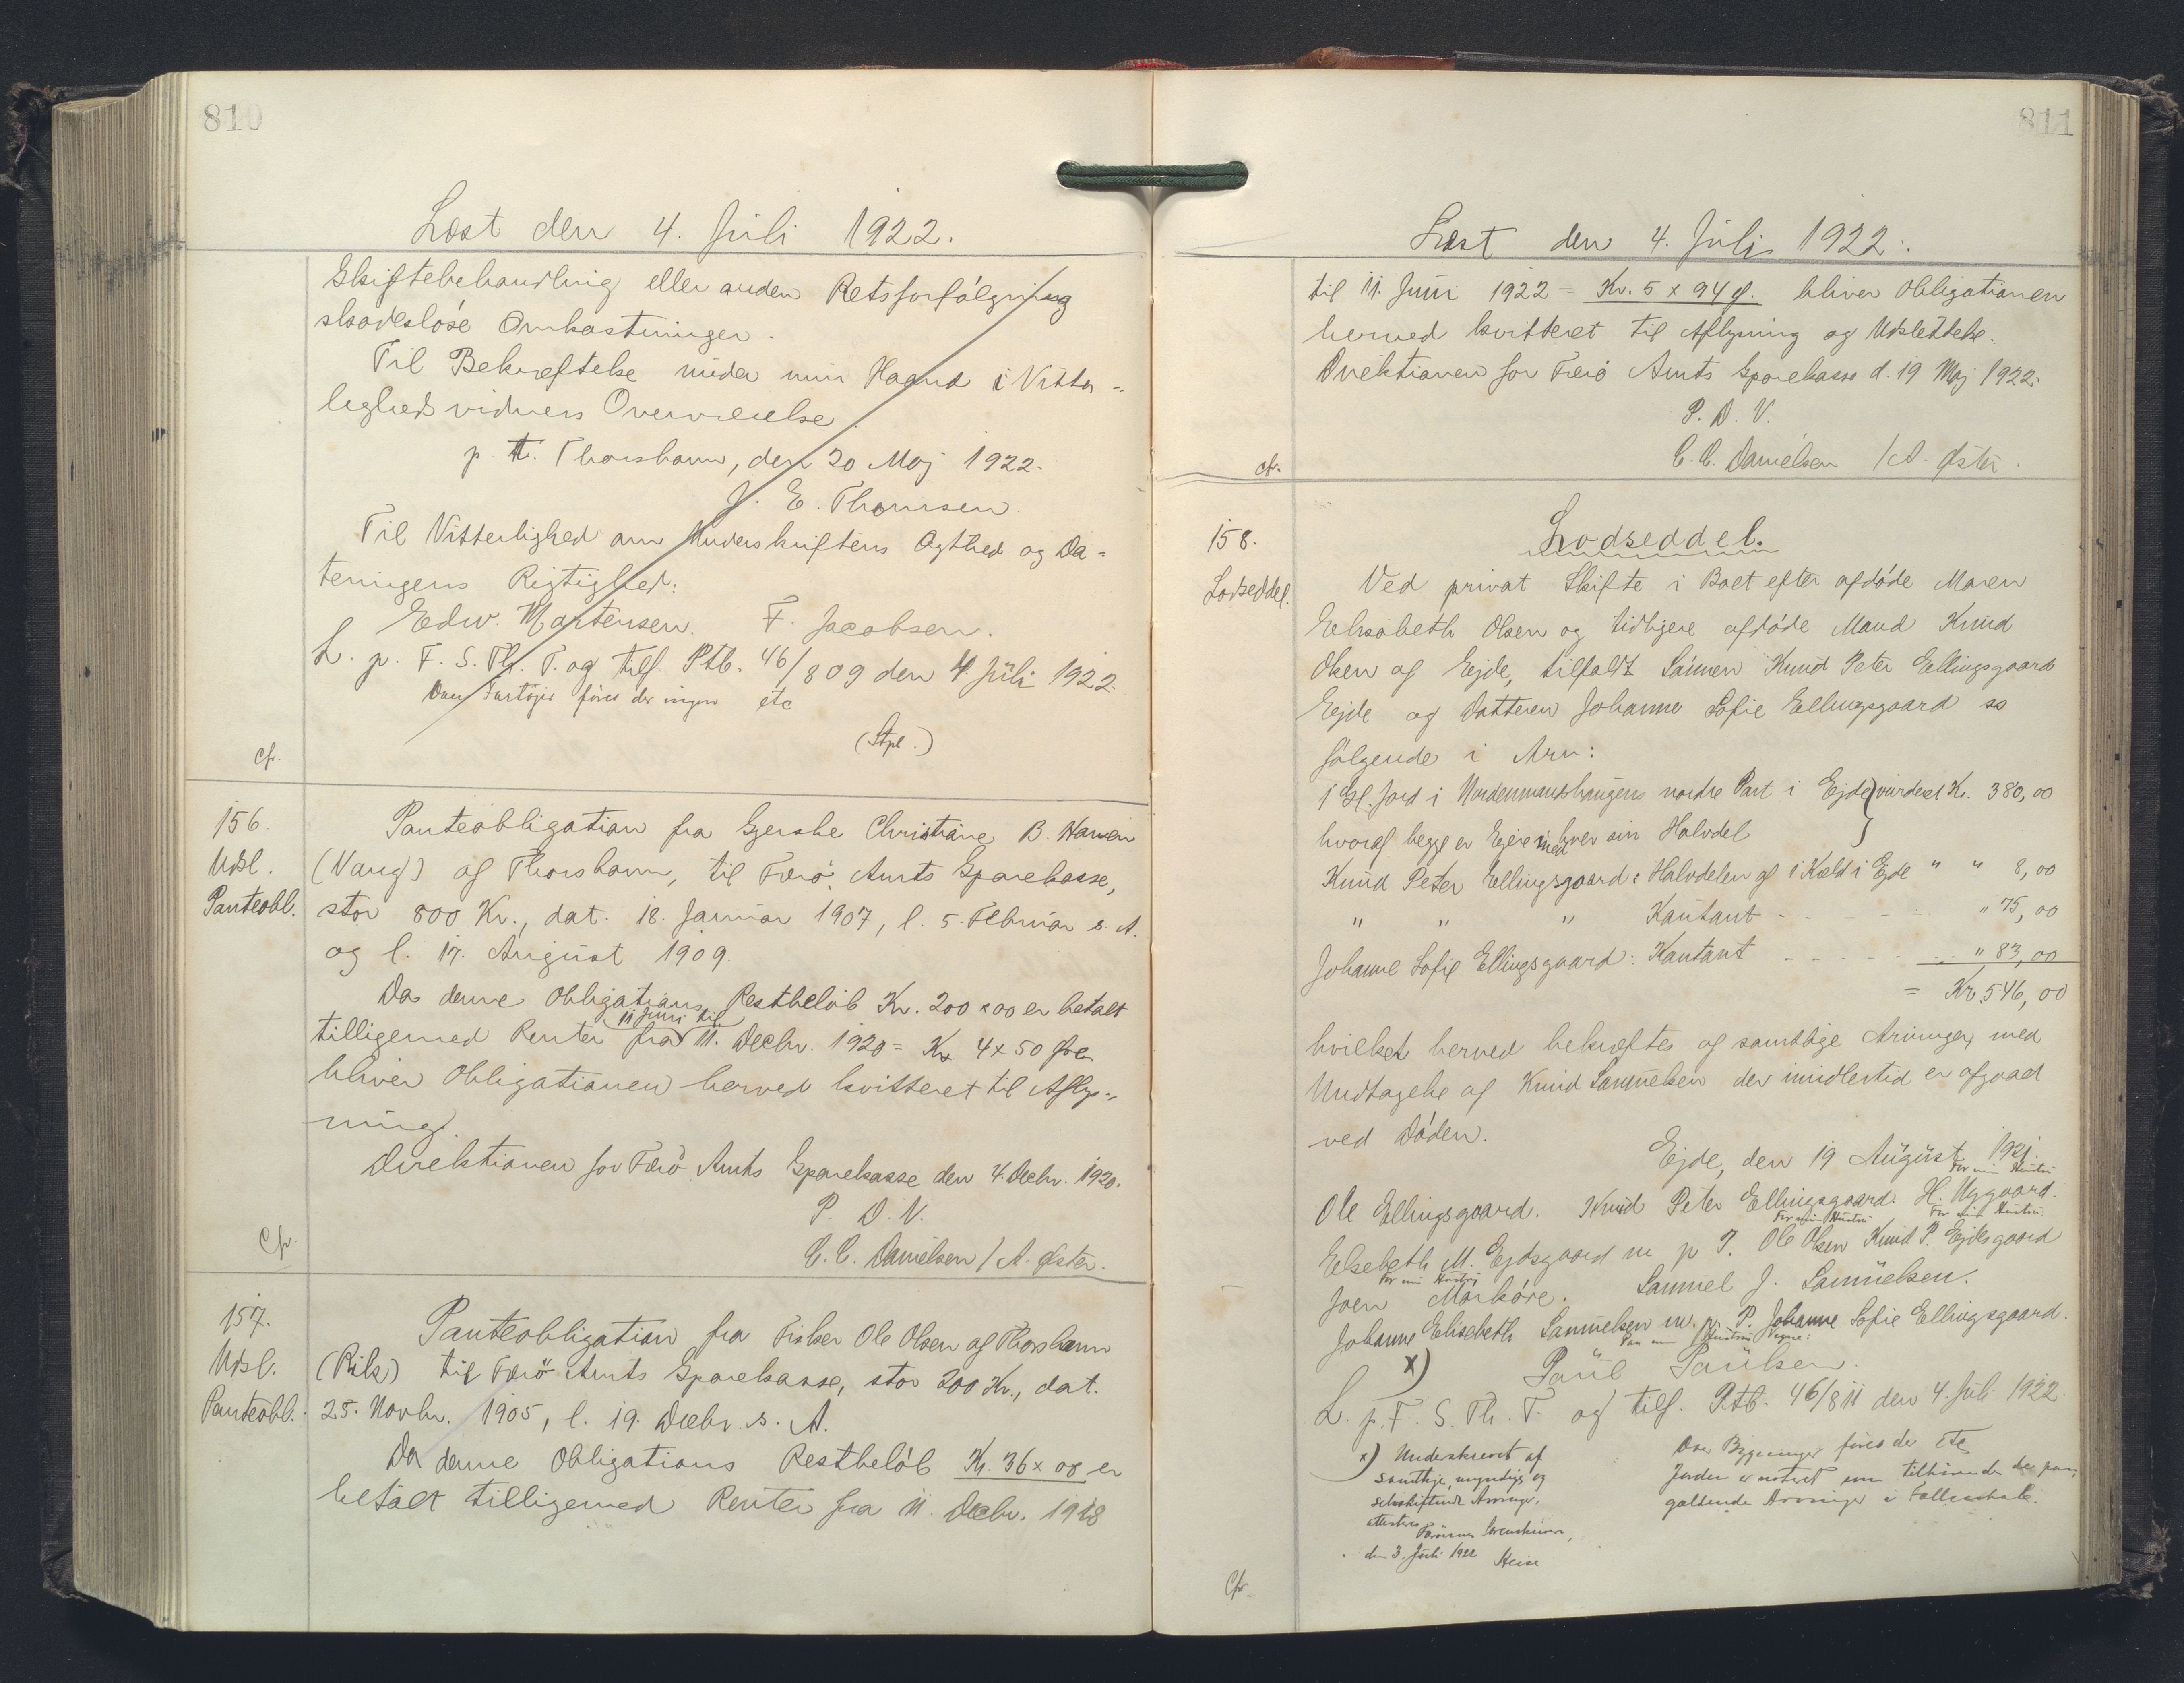 810
Læst den 4. Juli 1922.
Skiftebehandling eller anden Retsforfölgning
skadeslöse Omkostninger.
Til Bekræftelse under min Haand i Vitter=
lighedsvidners Overværelse.
p. t. Thorshavn, den 20 Maj 1922.
J. E. Thomsen.
Til Vitterlighed om Underskriftens Ægthed og Da=
teringens Rigtighed:
Edw. Mortensen. F. Jacobsen.
L. p. F. S. Th. T. og tilf. Ptb. 46/809 den 4. Juli 1922.
Over Fartöjer föres der ingen etc
(Stpl.)
cfr.
156.
Udsl.
Panteobl.
Panteobligation fra Gjerske Christiane B. Hansen
(Vang) af Thorshavn, til Færö Amts Sparekasse,
stor 800 Kr., dat. 18. Januar 1907, l. 5. Februar s. A.
og l. 17. August 1909.
Da denne Obligations Restbelöb Kr. 200 x 00 er betalt
11 Juni til
tilligemed Renter fra 11. Decbr. 1920 = Kr 4 x 50 Øre
bliver Obligationen herved kvitteret til Aflys=
ning.
Direktionen for Færö Amts Sparekasse den 4. Decbr. 1920.
P. D. V.
C. C. Danielsen / A. Øster.
Cfr.
157.
Udsl.
Panteobl.
Panteobligation fra Fisker Ole Olsen af Thorshavn
(Rile) til Færö Amts Sparekasse, stor 200 Kr., dat.
25. Novbr. 1905, l. 19. Decbr. s. A.
Da denne Obligations Restbelöb Kr. 36 x 00 er
betalt tilligemed Renter fra 11. Decbr. 1918
811
Læst den 4. Juli 1922.
til 11. Juni 1922 = Kr. 5 x 94 Ø. bliver Obligationen
herved kvitteret til Aflysning og Udslettelse.
Direktionen for Færö Amts Sparekasse d. 19 Maj 1922.
P. D. V.
C. C. Danielsen / A. Øster.
cfr.
158.
Lodseddel.
Lodseddel.
Ved privat Skifte i Boet efter afdöde Maren
Elisabeth Olsen og tidligere afdöde Mand Knud
Olsen af Ejde, tilfaldt Sönnen Knud Peter Ellingsgaard
Ejde og Datteren Johanne Sofie Ellingsgaard ss
fölgende i Arv:
1 Gl. Jord i Nordenmandshaugens nordre Part i Ejde } vurderet Kr. 380,00
hvoraf begge er Ejere med hver sin Halvdel
Knud Peter Ellingsgaard: Halvdelen af 1 Kæld i Ejde " " 8,00
" " " Kontant - - - - - " 75,00
Johanne Sofie Ellingsgaard: Kontant - - - - - - " 83,00
= Kr. 546,00
hvilket herved bekræftes af samtlige Arvinger, med
Undtagelse af Knud Samuelsen der imidlertid er afgaaet
ved Döden.
Ejde, den 19 August 1921.
For min Hustru
Ole Ellingsgaard. Knud Peter Ellingsgaard. H. Uggaard.
For min Hustru For min Hustru
Elsebeth M. Ejdsgaard m p P. Ole Olsen Knud P. Ejdesgaard
For min Hustru
Joen Morköre. Samuel J. Samuelsen.
Johanne Elisebeth Samuelsen m. p. P. Johanne Sofie Ellingsgaard.
Paa min Hustrus Vegne:
x) Paul Paulsen.
L. p. F. S. Th. T. og tilf. Ptb. 46/811 den 4. Juli 1922.
x) Underskrevet af
samtlige myndige og
selvskiftende Arvinger,
attesteres
Færöernes Sorenskriveri,
den 3. Juli 1922 Heise
Over Bygninger föres der etc
Jorden er noteret som tilhörende de paa
gældende Arvinger i Fællesskab.
Cfr.